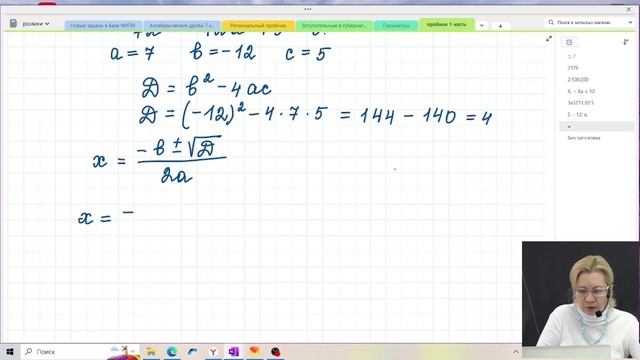 ролики
Новые задачи в базе ФИПИ
Алгебраические дроби 7 к...
Региональный пробник
Вступительные в губернат...
Параметры
пробник 1 часть
Поиск в записных книжках
a = 7 в = -12 c = 5
D = в² - 4ac
D = (-12)² - 4 · 7 · 5 = 144 - 140 = 4
x = -в ± √D / 2a
x = -
Без заголовка
Поиск